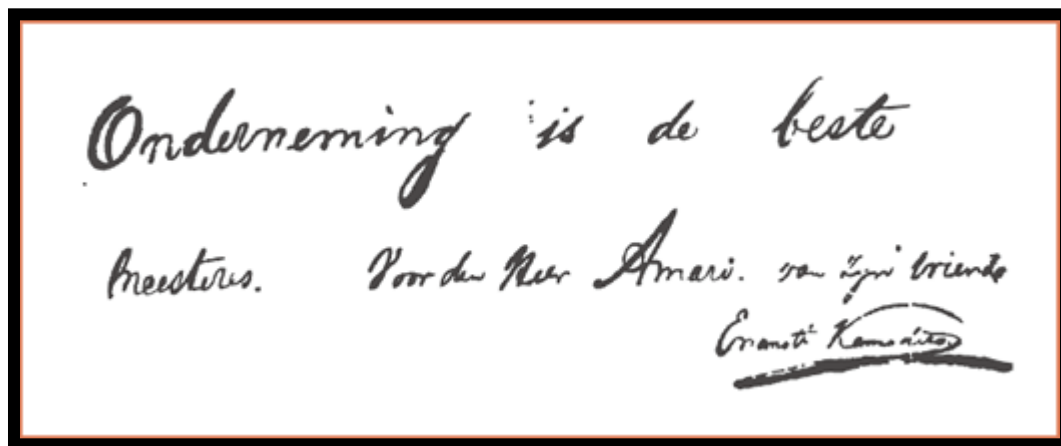 Onderneming is de beste
Meesteres. Voor den Heer Amari. van zijn vriend
Enamoti